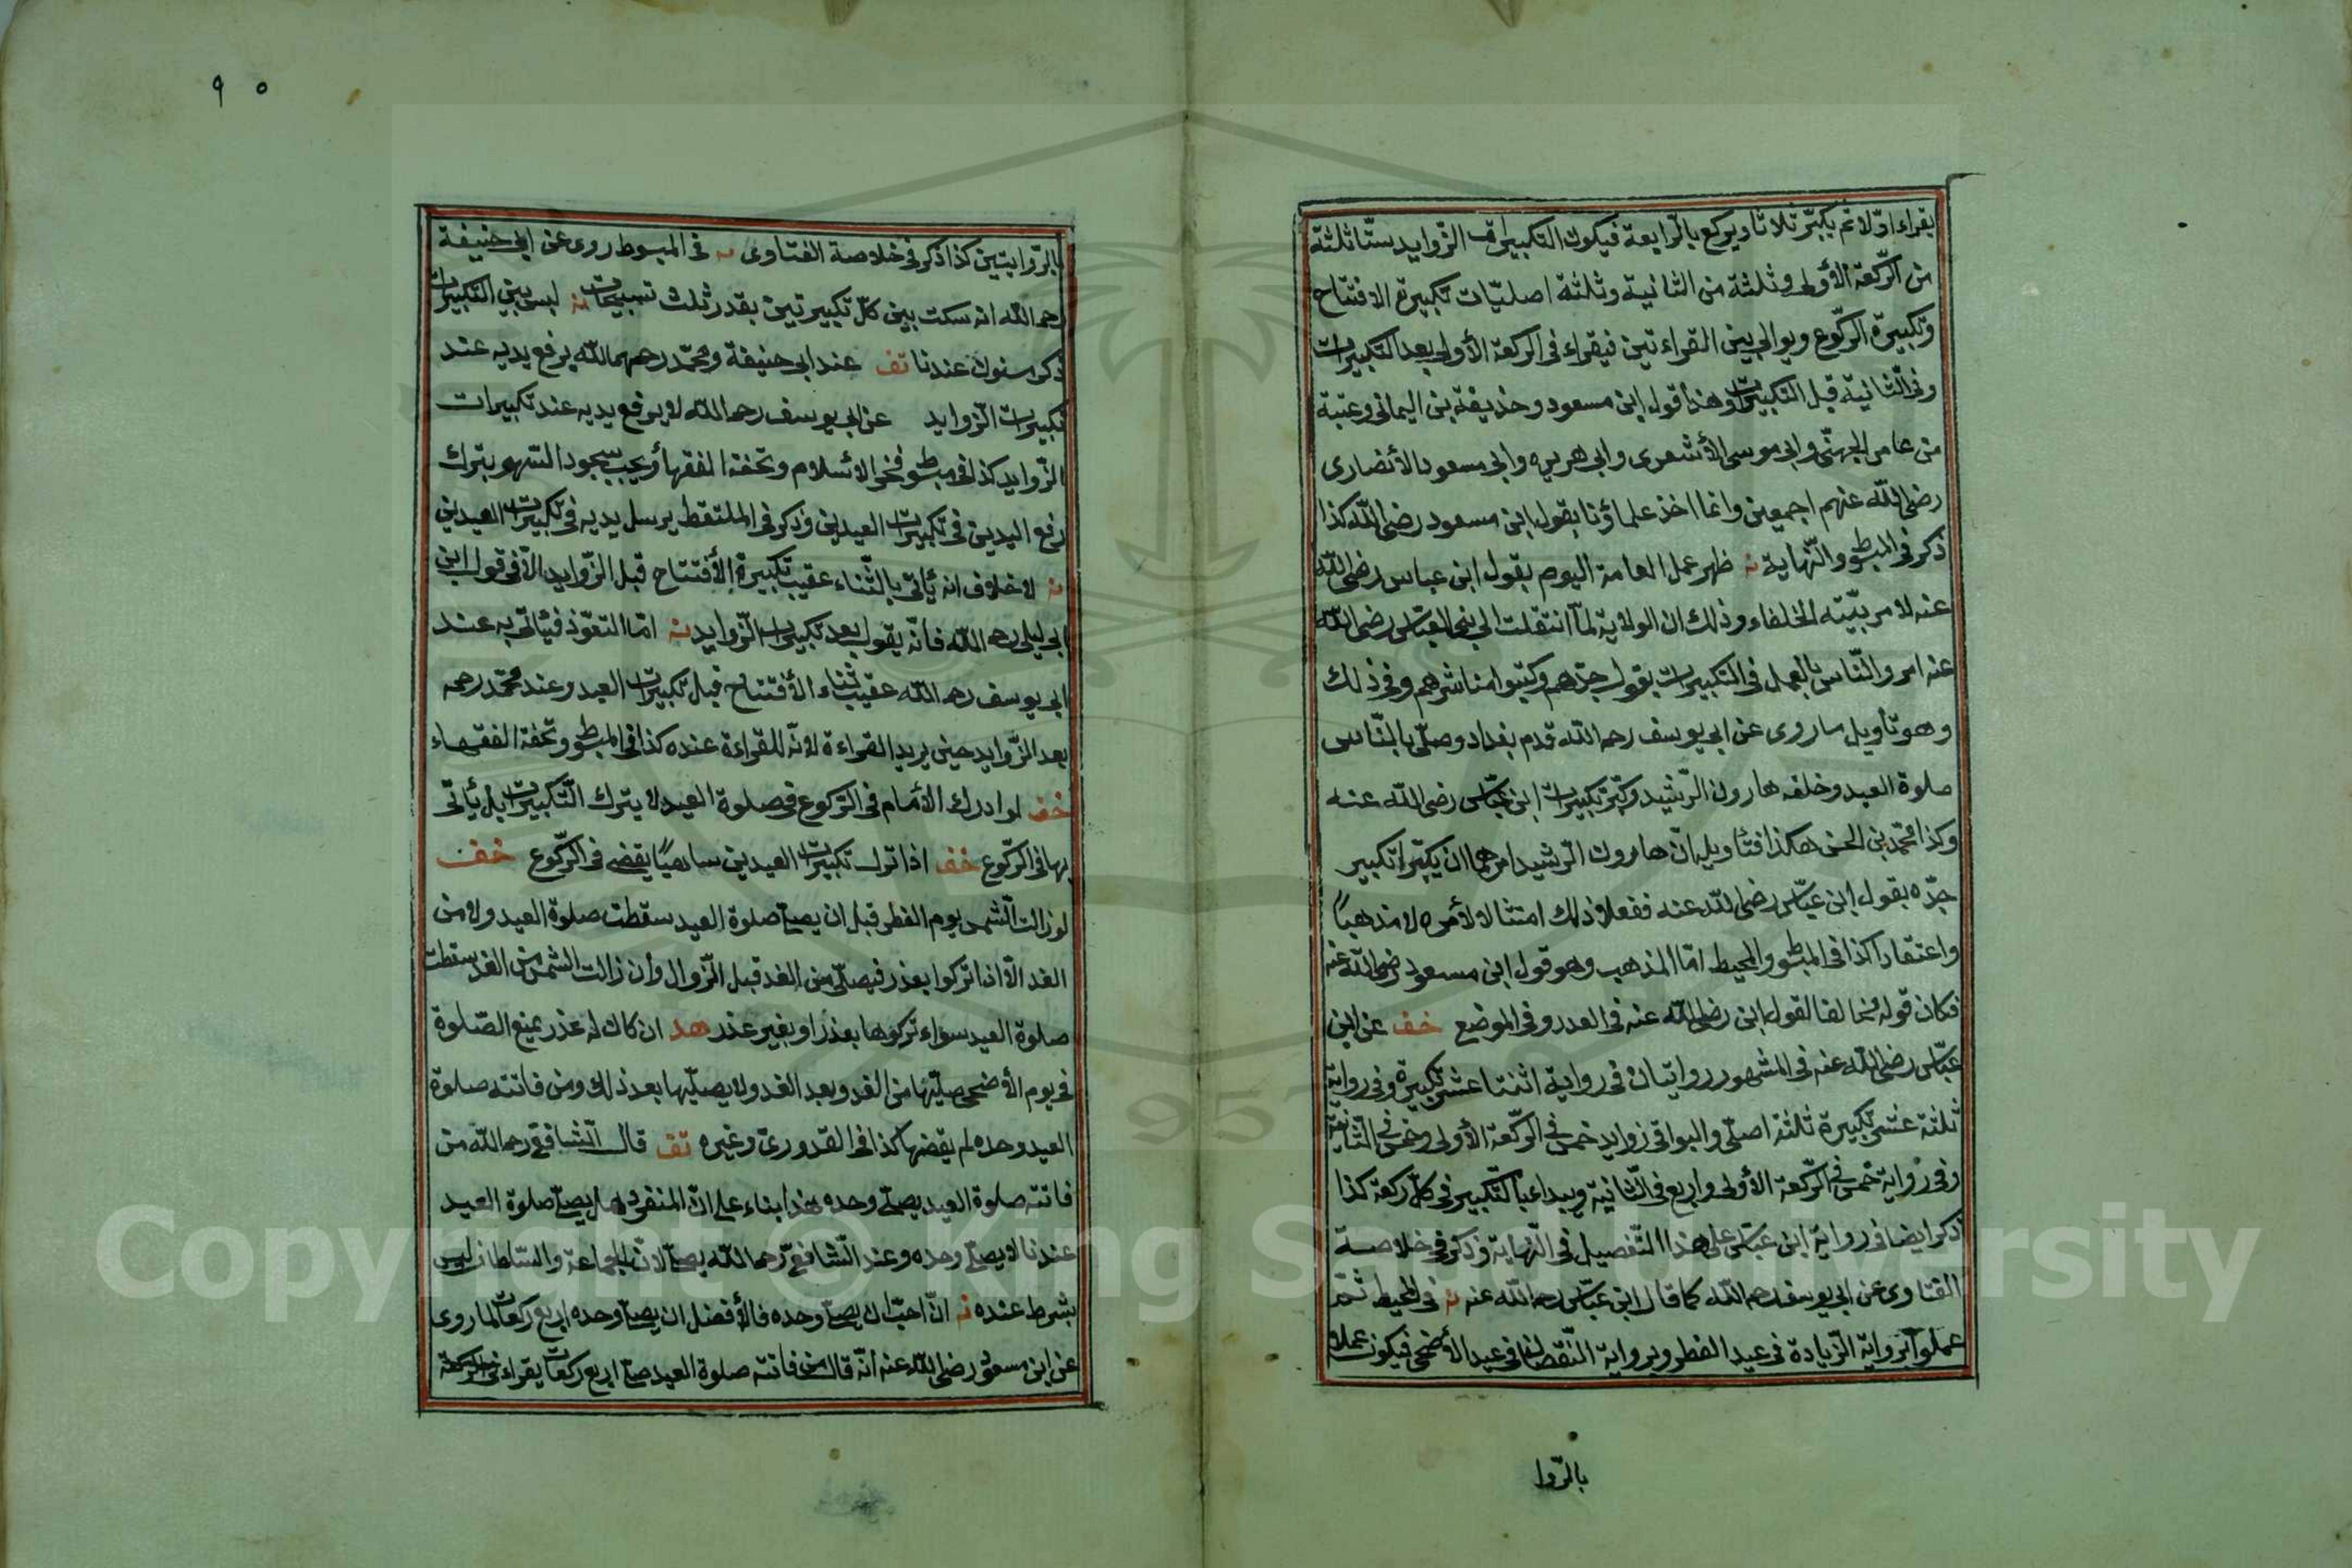 يقراء اوّلا ثم يكبّر ثلاثا ويركع بالرّابعة فيكون التكبيرات الزّوايد ستّا ثلثة
من الرّكعة الأولى وثلثة من الثانية وثلثة اصليّات تكبيرة الافتتاح
وتكبيرة الرّكوع ويوالى بين القراءتين فيقراء فى الركعة الأولى بعد التكبيرات
وفى الثانية قبل التكبيرات وهذا قول ابن مسعود وحذيفة بن اليمانى وعتبة
من عامر الجهنّى وابى موسى الأشعرى وابى هريره وابى مسعود الأنصارى
رضى اللّه عنهم اجمعين وانما اخذ علماؤنا بقول ابن مسعود رضى اللّه كذا
ذكر فى المبسّوط والنّهاية نه ظهر عمل العامة اليوم بقول ابن عباس رضى اللّه
عنه لامر بيّته الخلفاء وذلك ان الولاية لمّا انتقلت الى بنى العبّاس رضى اللّه
عنه امروا النّاس بالعمل فى التكبيرات بقول جدّهم وكتبوا مناشرهم وفى ذلك
وهو تأويل ما روى عن ابى يوسف رحمه اللّه قدم بغداد وصلّى بالنّاس
صلوة العيد وخلفه هارون الرّشيد وكبّر تكبيرات ابن عبّاس رضى اللّه عنه
وكذا محمّد بن الحسن هكذا فتأويله انّ هارون الرّشيد امرهما ان يكبّرا تكبير
جدّه بقول ابن عبّاس رضى اللّه عنه ففعلا ذلك امتثالا لأمره لا مذهباً
واعتقادا كذا فى المبسّوط والمحيط امّا المذهب وهو قول ابن مسعود رضى اللّه عنه
فكان قوله مخالفا لقول ابن رضى اللّه عنه فى العدد وفى الموضع خف عن ابن
عبّاس رضى اللّه عنه فى المشهور روايتان فى رواية اثنتا عشر تكبيرة وفى رواية
ثلثة عشر تكبيرة ثلثة اصلّى والبواقى زوايد خمس فى الرّكعة الأولى وخمس فى الثّانية
وفى رواية خمس فى الرّكعة الأولى واربع فى الثّانية ويبداء بالتّكبير فى كلّ ركعة كذا
ذكر ايضا فى رواية ابن عبّاس على هذا التّفصيل فى النّهاية وذكر فى خلاصة
الفتاوى عن ابى يوسف رحمه اللّه كما قال ابن عبّاس رحمه اللّه عنه نه فى المحيط ثمّ
عملوا برواية الزّيادة فى عيد الفطر وبرواية النّقصان فى عيد الأضحى فيكون عملا
بالرّوا
٩٠
بالرّوايتين كذا ذكر فى خلاصة الفتاوى نه فى المبسوط روى عن ابى حنيفة
رحمه اللّه انه سكت بين كلّ تكبيرتين بقدر ثلث تسبيحات نه ليس بين التكبيرات
ذكر مسنون عندنا تف عند ابى حنيفة ومحمّد رحمهما اللّه يرفع يديه عند
تكبيرات الزّوايد عن ابى يوسف رحمه اللّه لا يرفع يديه عند تكبيرات
الزّوايد كذا فى مبسّوط فخر الاسلام وتحفة الفقهاء ويجب سجود السّهو بترك
رفع اليدين فى تكبيرات العيدين وذكر فى الملتقط يرسل يديه فى تكبيرات العيدين
نه لا خلاف انه يأتى بالثّناء عقيب تكبيرة الأفتتاح قبل الزّوايد الّا فى قول ابن
ابى ليلى رحمه اللّه فانّه يقول بعد تكبيرات الزّوايد نه امّا التعوّذ فيأتى به عند
ابى يوسف رحمه اللّه عقيب ثناء الأفتتاح قبل تكبيرات العيد وعند محمّد رحمه
بعد الزّوايد حين يريد القراءة لانّه للقراءة عنده كذا فى المبسّوط وتحفة الفقهاء
خف لو ادرك الأمام فى الرّكوع فى صلوة العيد لا يترك التّكبيرات بل يأتى
بها فى الرّكوع خف اذا ترك تكبيرات العيدين ساهيًا يقضى فى الرّكوع خف
لو زالت الشّمس يوم الفطر قبل ان يصلّى صلوة العيد سقطت صلوة العيد ولا من
الغد الّا اذا تركوا بعذر فيصلّى من الغد قبل الزّوال وأن زالت الشمس من الغد سقطت
صلوة العيد سواء تركوها بعذر او بغير عذر هد ان كان له عذر يمنع الصّلوة
فى يوم الأضحى صلّيها من الغد وبعد الغد ولا يصلّيها بعد ذلك ومن فاتته صلوة
العيد وحده لم يقضها كذا فى القدورىّ وغيره تف قال الشّافعى رحمه اللّه من
فاتته صلوة العيد يصلّى وحده هذا بناء على انّ المنفرد هل يصلّى صلوة العيد
عندنا لا يصلّى وحده وعند الشّافعىّ رحمه اللّه يصلّى لانّ الجماعة والسّلطان ليس
بشرط عنده نه انّ احبّ ان يصلّى وحده فالأفضل ان يصلّى وحده اربع ركعات لما روى
عن ابن مسعود رضى اللّه عنه انّه قال من فاتته صلوة العيد صلّى اربع ركعات يقراء فى الركعة